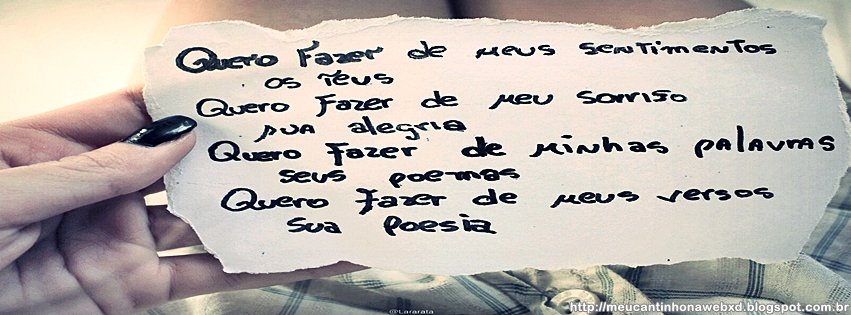 Quero Fazer de meus sentimentos
os Teus
Quero Fazer de meu sorriso
sua alegria
Quero Fazer de minhas palavras
seus poemas
Quero Fazer de meus versos
sua Poesia
@Lararata
http://meucantinhonawebxd.blogspot.com.br